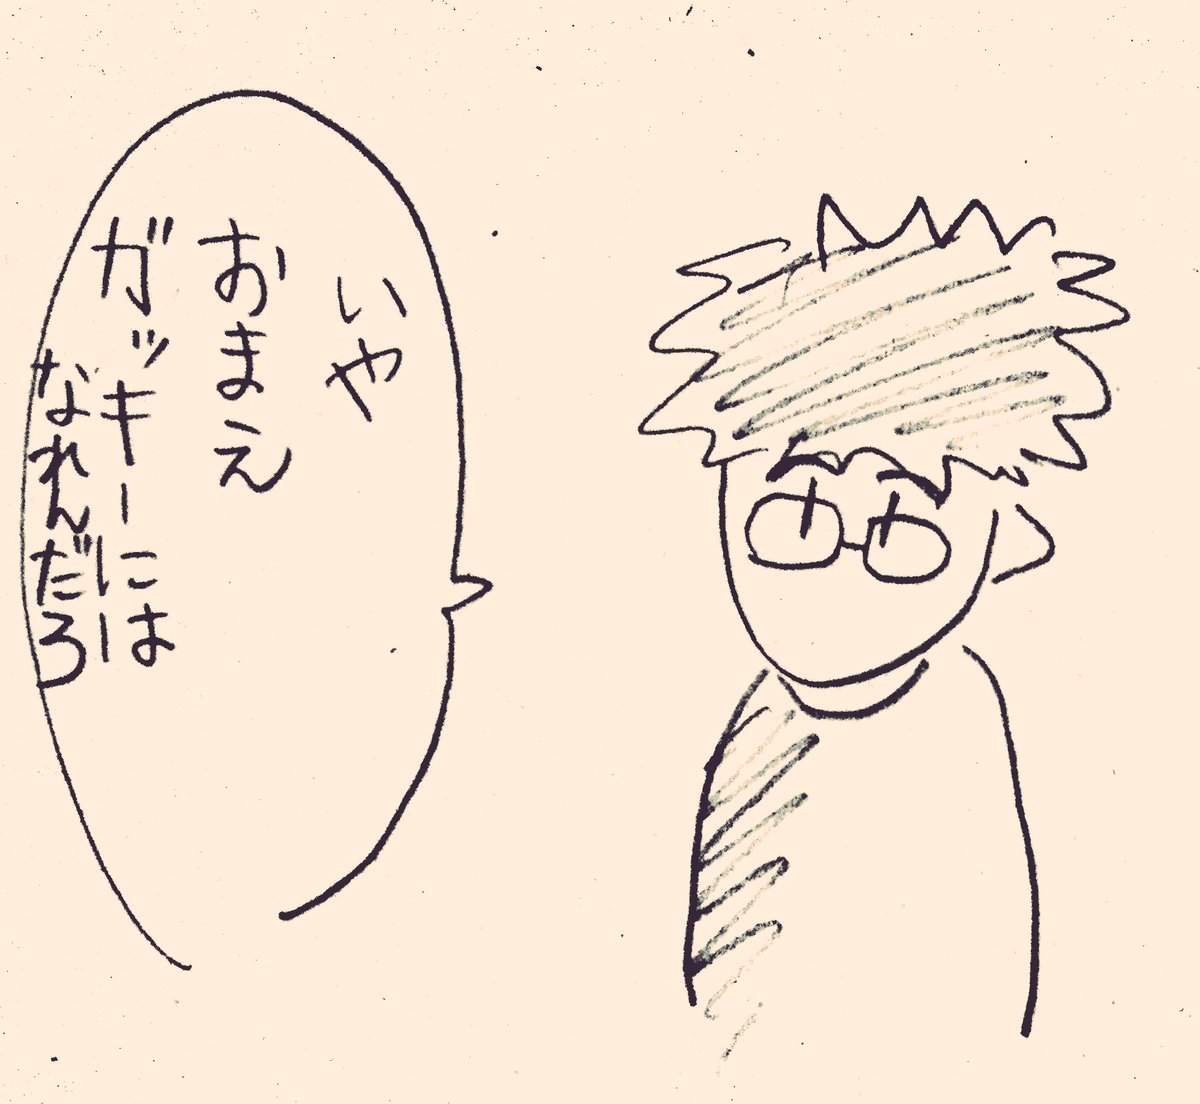 いや
おまえ
ガッキーには
なれんだろ